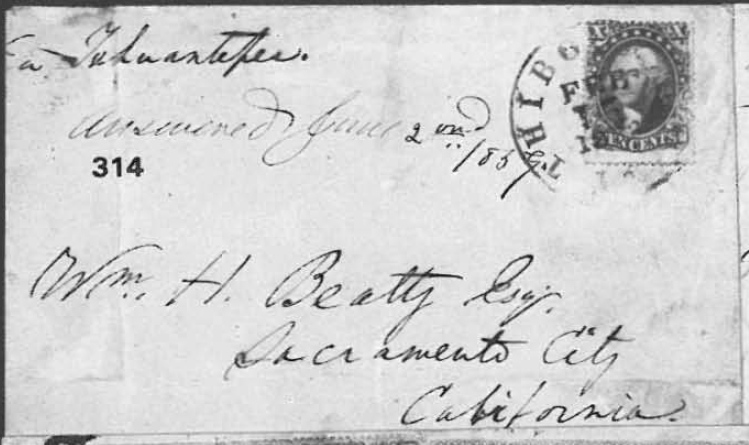 Via Tehuantepec.
Answered June 2nd
1859.
314
THIBO
FEB
TEN CENTS
X X
Wm. H. Beatty Esq.
Sacramento City
California.